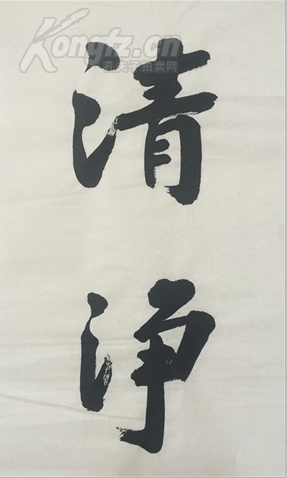 Kongfz.cn
孔夫子拍卖网
清
净